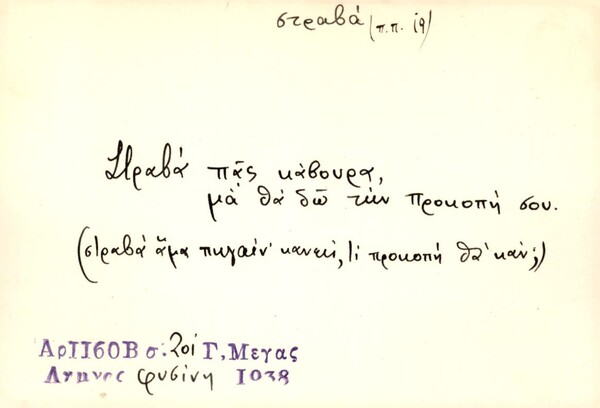 στραβά (π.π. 19)
Στραβά πᾷς κάβουρα,
μὰ θὰ δῶ τὴν προκοπή σου.
(στραβά ἅμα πηγαίν' κανείς, τί προκοπή θά' καν;)
Αρ 1160Β σ. 201 Γ. Μεγας
Ληµνος Φυσίνη 1938